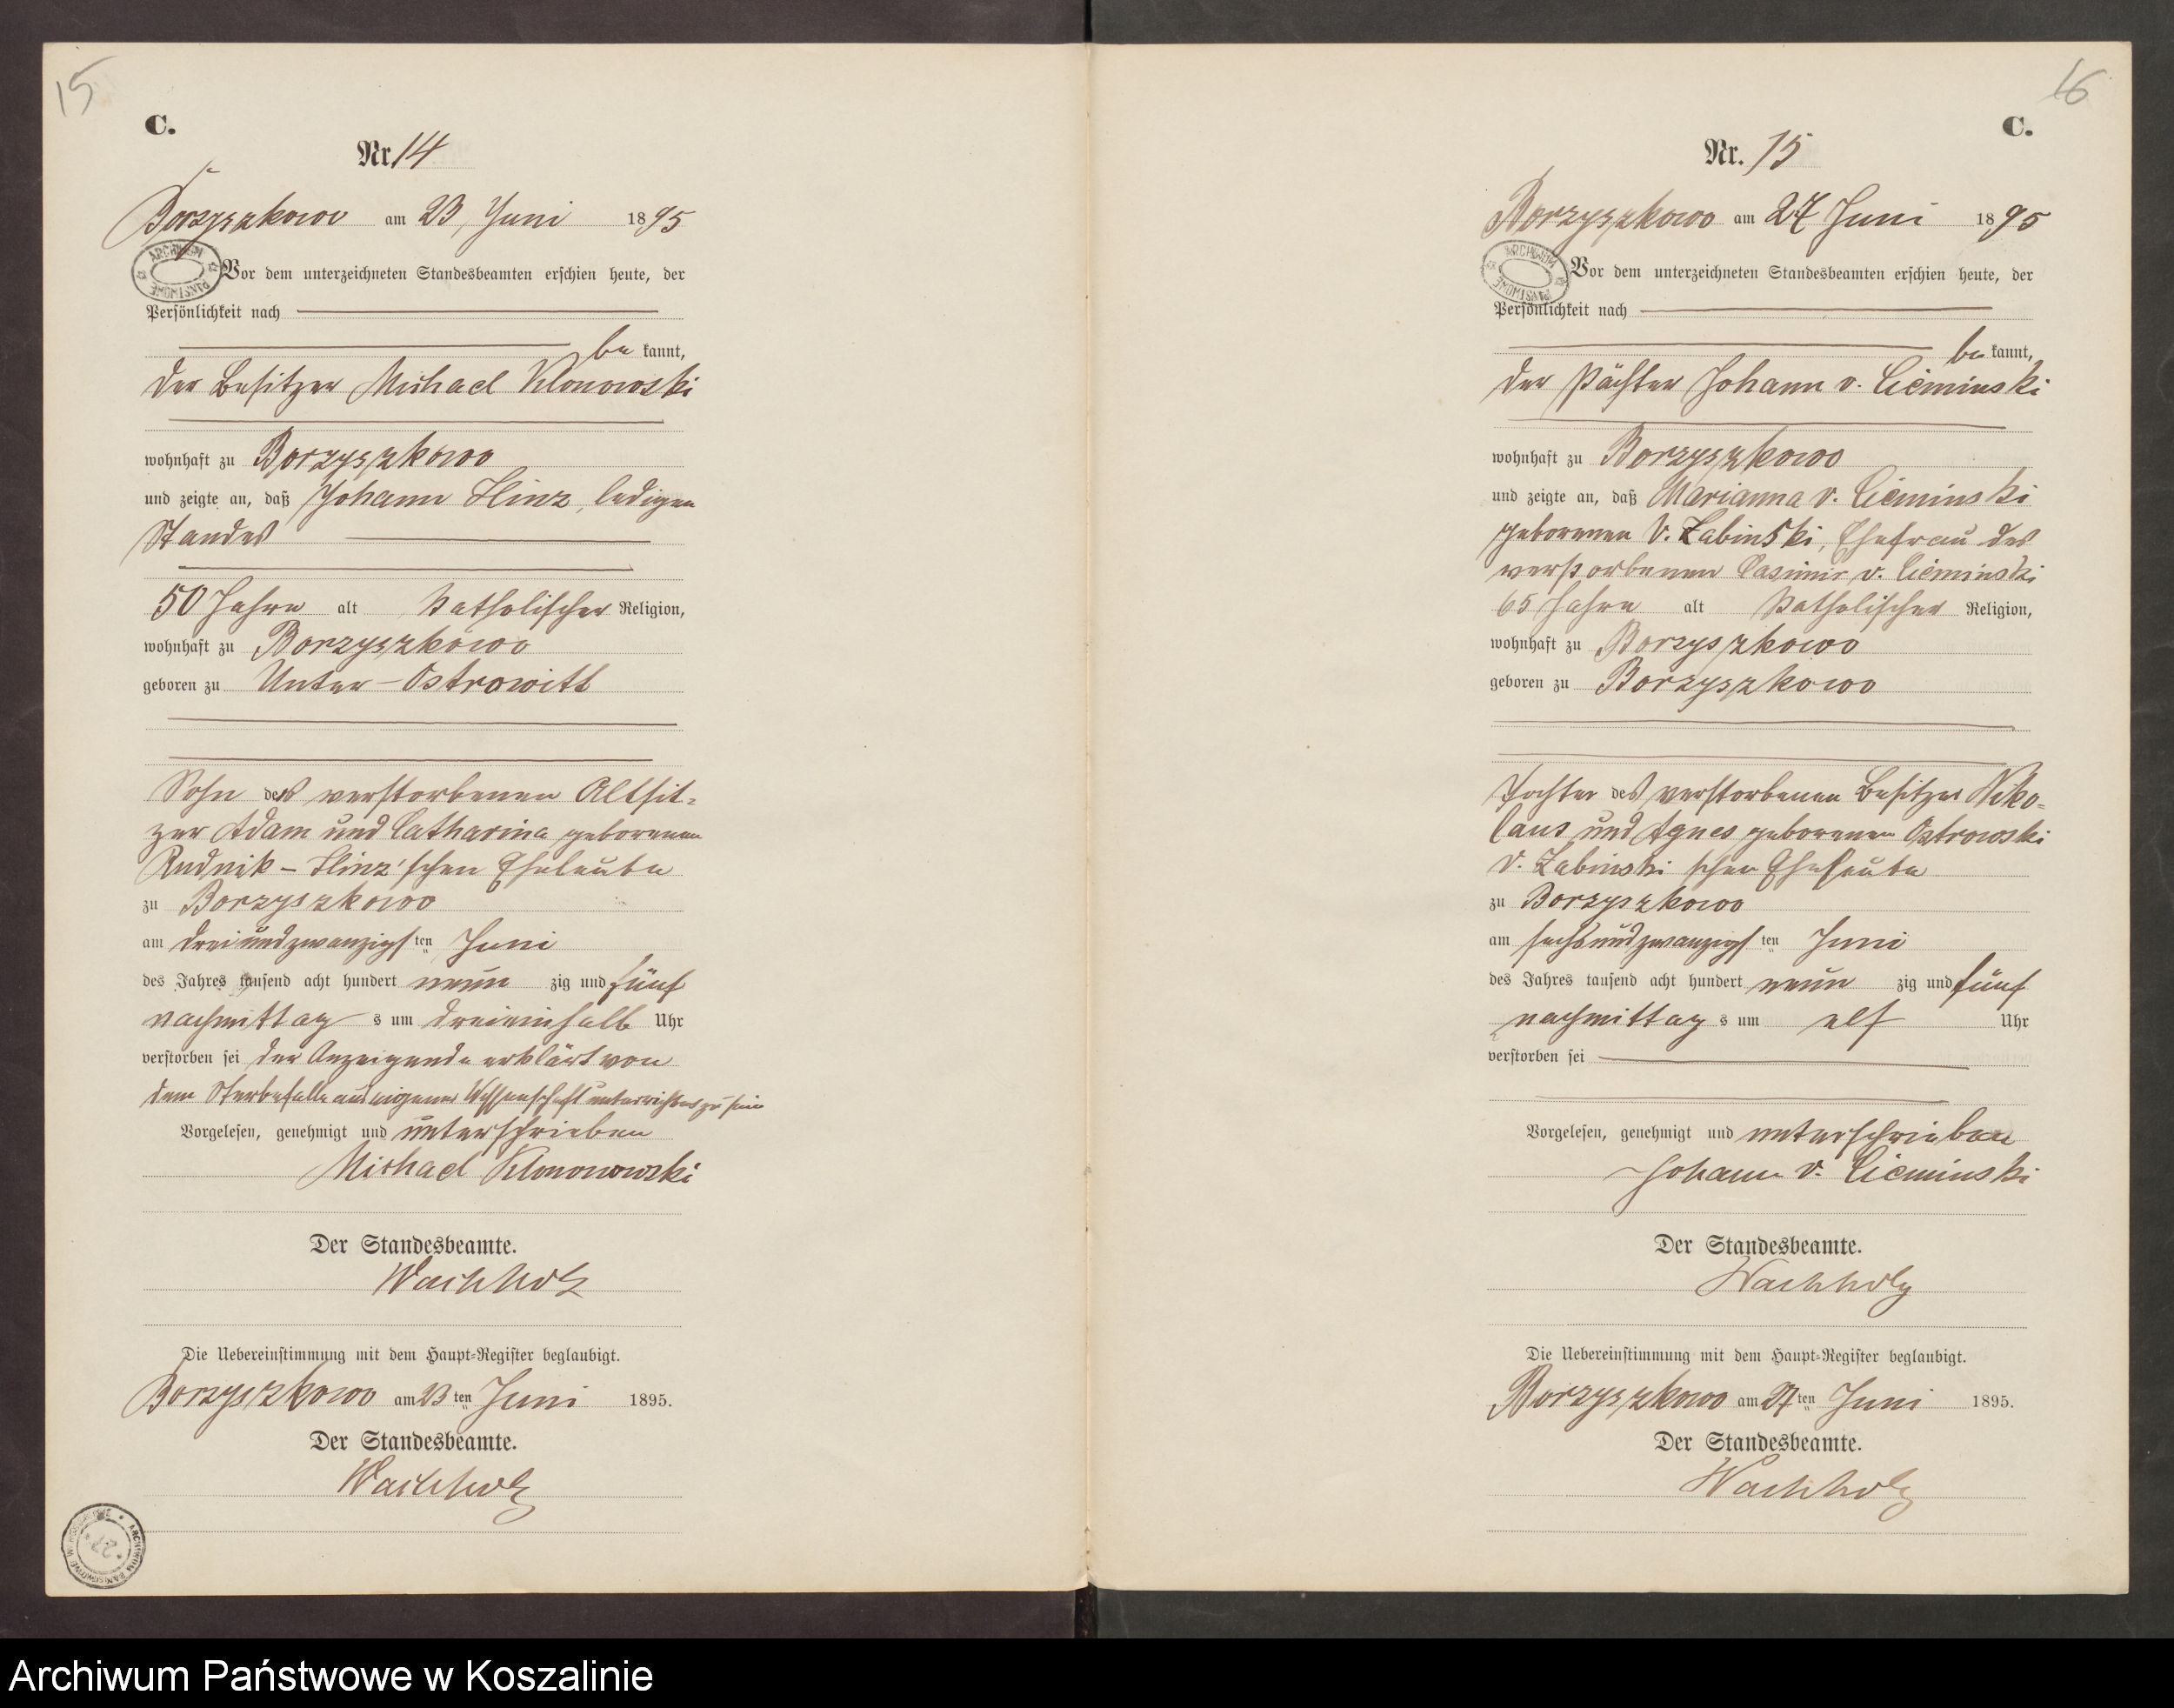 15
C.
Nr. 14
Borzyszkowo am 23 Juni 1895
Vor dem unterzeichneten Standesbeamten erschien heute, der
Persönlichkeit nach
be kannt,
der Besitzer Michael Klonowski
wohnhaft zu Borzyszkowo
und zeigte an, daß Johann Hinz, ledigen
Standes
50 Jahre alt katholischer Religion,
wohnhaft zu Borzyszkowo
geboren zu Unter-Ostrowitt
Sohn des verstorbenen Altsit-
zer Adam und Catharina geborenen
Rudnik - Hinz'schen Eheleute
zu Borzyszkowo
am dreiundzwanzigsten Juni
des Jahres tausend acht hundert neun zig und fünf
nachmittag s um dreieinhalb Uhr
verstorben sei der Anzeigende erklärt von
dem Sterbefalle aus eigener Wissenschaft unterrichtet zu sein
Vorgelesen, genehmigt und unterschrieben
Michael Klononowski
Der Standesbeamte.
Wachholz
Die Uebereinstimmung mit dem Haupt-Register beglaubigt.
Borzyszkowo am 23 ten Juni 1895.
Der Standesbeamte.
Wachholz
16
C.
Nr. 15
Borzyszkowo am 27 Juni 1895
Vor dem unterzeichneten Standesbeamten erschien heute, der
Persönlichkeit nach
be kannt,
der Pächter Johann v. Cieminski
wohnhaft zu Borzyszkowo
und zeigte an, daß Marianna v. Cieminski
geborenen v. Zabinski, Ehefrau des
verstorbenen Casimir v. Cieminski
65 Jahre alt katholischer Religion,
wohnhaft zu Borzyszkowo
geboren zu Borzyszkowo
Tochter des verstorbenen Besitzer Niko-
laus und Agnes geborenen Ostrowski
v. Zabinski schen Eheleute
zu Borzyszkowo
am sechsundzwanzigsten Juni
des Jahres tausend acht hundert neun zig und fünf
nachmittag s um elf Uhr
verstorben sei
Vorgelesen, genehmigt und unterschrieben
Johann v. Cieminski
Der Standesbeamte.
Wachholz
Die Uebereinstimmung mit dem Haupt-Register beglaubigt.
Borzyszkowo am 27 ten Juni 1895.
Der Standesbeamte.
Wachholz
Archiwum Państwowe w Koszalinie